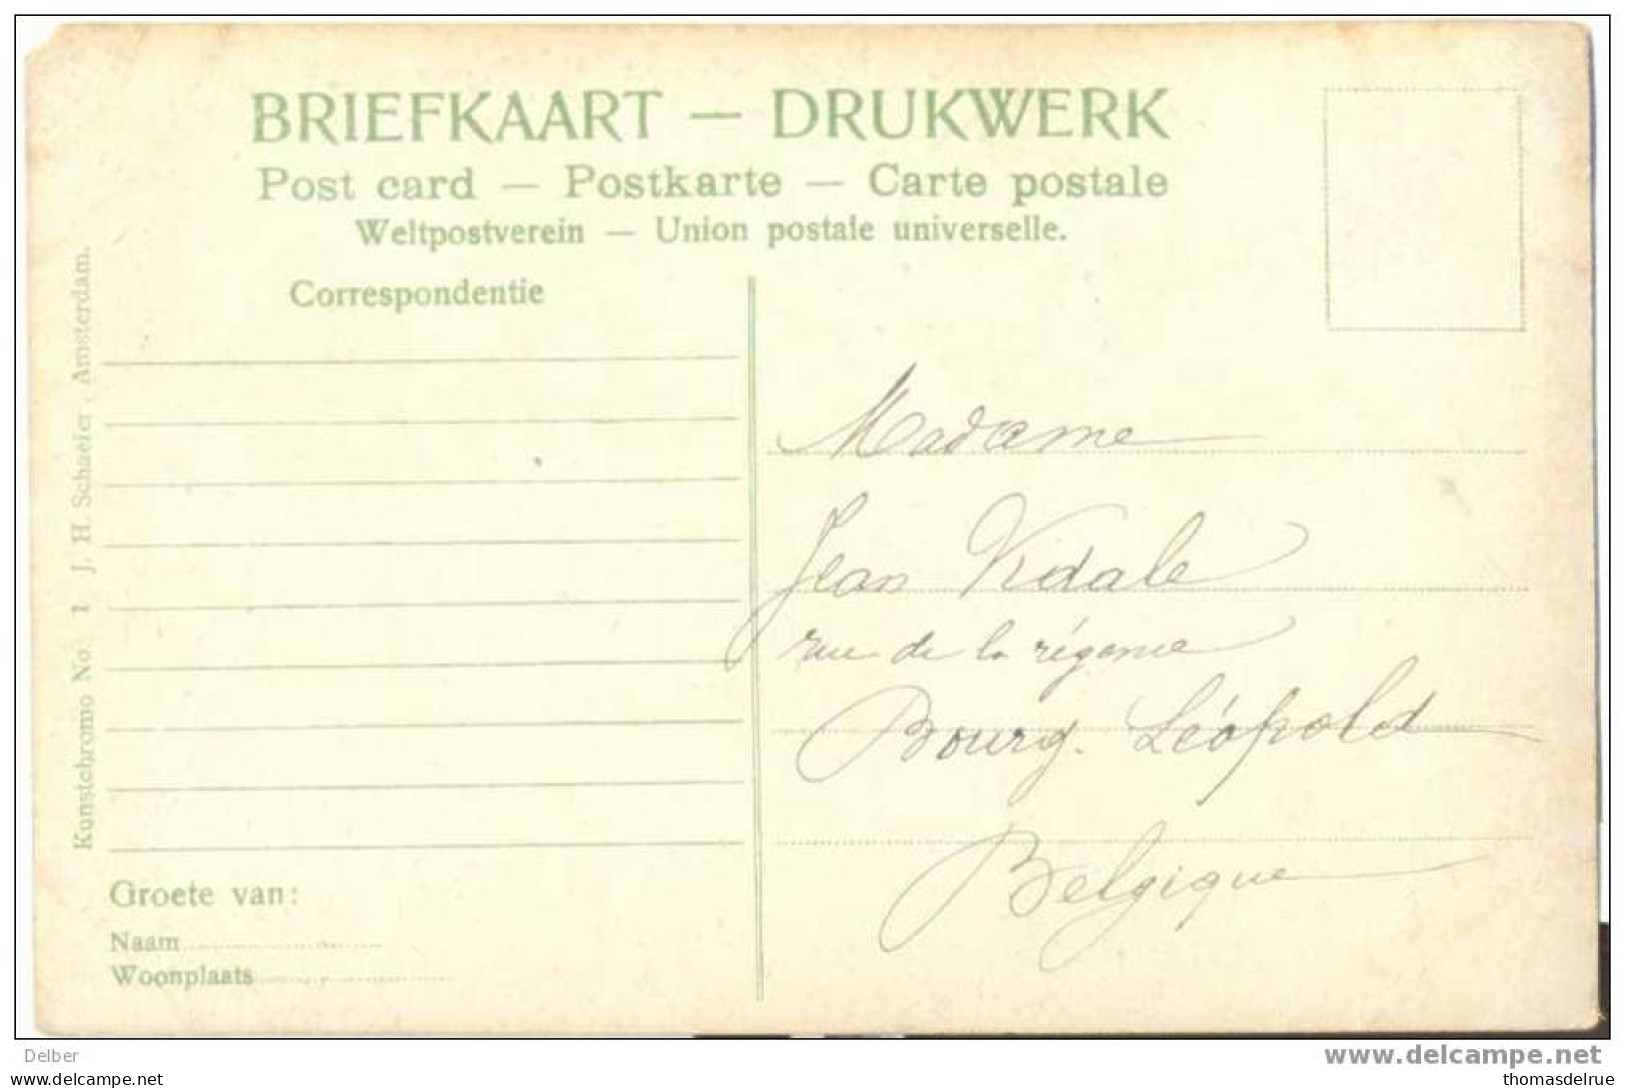 BRIEFKAART — DRUKWERK
Post card — Postkarte — Carte postale
Weltpostverein — Union postale universelle.
Correspondentie
Kunstchromo No. 1 J. H. Schaefer, Amsterdam.
Madame
Jean Vidale
rue de la régence
Bourg. Léopold
Belgique
Groete van:
Naam
Woonplaats
Delber
delcampe.net
www.delcampe.net
thomasdelrue